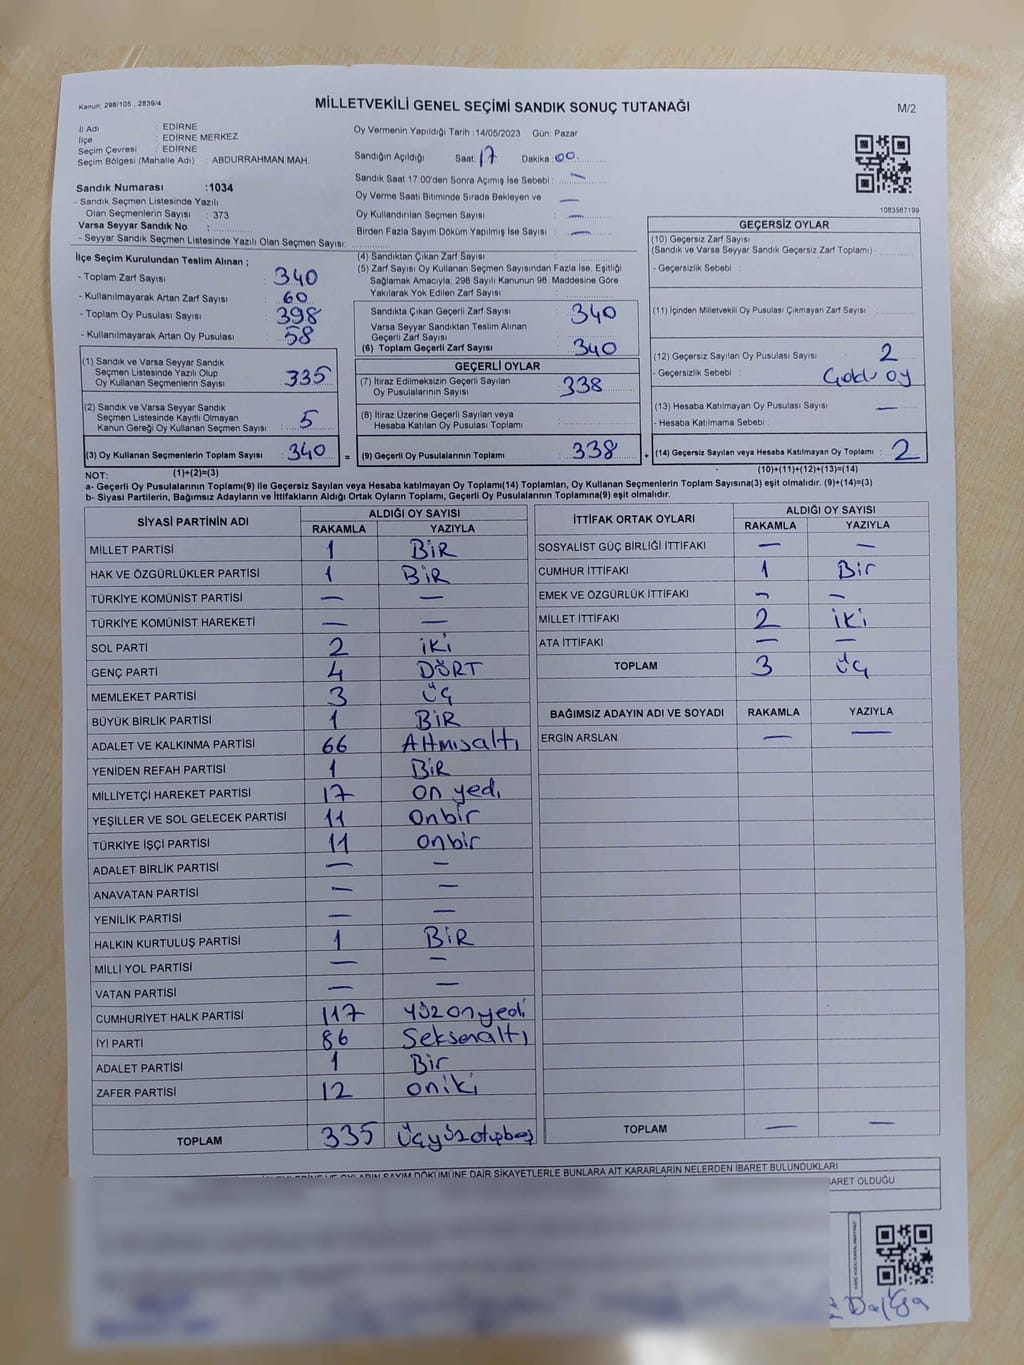 Kanun: 298/105 , 2839/4
MİLLETVEKİLİ GENEL SEÇİMİ SANDIK SONUÇ TUTANAĞI
M/2
İl Adı : EDİRNE
İlçe : EDİRNE MERKEZ
Seçim Çevresi : EDİRNE
Seçim Bölgesi (Mahalle Adı) : ABDURRAHMAN MAH.
Oy Vermenin Yapıldığı Tarih : 14/05/2023 Gün: Pazar
Sandığın Açıldığı Saat: 17 Dakika 00
Sandık Saat 17:00'den Sonra Açımış İse Sebebi : —
Oy Verme Saati Bitiminde Sırada Bekleyen ve —
Oy Kullandırılan Seçmen Sayısı —
Birden Fazla Sayım Döküm Yapılmış İse Sayısı —
1083567199
Sandık Numarası :1034
- Sandık Seçmen Listesinde Yazılı
Olan Seçmenlerin Sayısı : 373
Varsa Seyyar Sandık No :
- Seyyar Sandık Seçmen Listesinde Yazılı Olan Seçmen Sayısı:
İlçe Seçim Kurulundan Teslim Alınan ;
- Toplam Zarf Sayısı : 340
- Kullanılmayarak Artan Zarf Sayısı : 60
- Toplam Oy Pusulası Sayısı : 398
- Kullanılmayarak Artan Oy Pusulası : 58
(1) Sandık ve Varsa Seyyar Sandık
Seçmen Listesinde Yazılı Olup
Oy Kullanan Seçmenlerin Sayısı : 335
(2) Sandık ve Varsa Seyyar Sandık
Seçmen Listesinde Kayıtlı Olmayan
Kanun Gereği Oy Kullanan Seçmen Sayısı : 5
(3) Oy Kullanan Seçmenlerin Toplam Sayısı : 340
(4) Sandıktan Çıkan Zarf Sayısı :
(5) Zarf Sayısı Oy Kullanan Seçmen Sayısından Fazla İse, Eşitliği
Sağlamak Amacıyla, 298 Sayılı Kanunun 98. Maddesine Göre
Yakılarak Yok Edilen Zarf Sayısı :
Sandıkta Çıkan Geçerli Zarf Sayısı : 340
Varsa Seyyar Sandıktan Teslim Alınan
Geçerli Zarf Sayısı :
(6) Toplam Geçerli Zarf Sayısı : 340
GEÇERLİ OYLAR
(7) İtiraz Edilmeksizin Geçerli Sayılan
Oy Pusulalarının Sayısı : 338
(8) İtiraz Üzerine Geçerli Sayılan veya
Hesaba Katılan Oy Pusulası Toplamı :
= (9) Geçerli Oy Pusulalarının Toplamı : 338
GEÇERSİZ OYLAR
(10) Geçersiz Zarf Sayısı
(Sandık ve Varsa Seyyar Sandık Geçersiz Zarf Toplamı) :
- Geçersizlik Sebebi :
(11) İçinden Milletvekili Oy Pusulası Çıkmayan Zarf Sayısı :
(12) Geçersiz Sayılan Oy Pusulası Sayısı : 2
- Geçersizlik Sebebi :
(13) Hesaba Katılmayan Oy Pusulası Sayısı : —
- Hesaba Katılmama Sebebi :
+ (14) Geçersiz Sayılan veya Hesaba Katılmayan Oy Toplamı : 2
NOT: (1)+(2)=(3) (10)+(11)+(12)+(13)=(14)
a- Geçerli Oy Pusulalarının Toplamı(9) ile Geçersiz Sayılan veya Hesaba katılmayan Oy Toplamı(14) Toplamları, Oy Kullanan Seçmenlerin Toplam Sayısına(3) eşit olmalıdır. (9)+(14)=(3)
b- Siyasi Partilerin, Bağımsız Adayların ve İttifakların Aldığı Ortak Oyların Toplamı, Geçerli Oy Pusulalarının Toplamına(9) eşit olmalıdır.
SİYASİ PARTİNİN ADI ALDIĞI OY SAYISI
RAKAMLA YAZIYLA
MİLLET PARTİSİ 1 BİR
HAK VE ÖZGÜRLÜKLER PARTİSİ 1 BİR
TÜRKİYE KOMÜNİST PARTİSİ — —
TÜRKİYE KOMÜNİST HAREKETİ — —
SOL PARTİ 2 İKİ
GENÇ PARTİ 4 DÖRT
MEMLEKET PARTİSİ 3 ÜÇ
BÜYÜK BİRLİK PARTİSİ 1 BİR
ADALET VE KALKINMA PARTİSİ 66 Altmışaltı
YENİDEN REFAH PARTİSİ 1 BİR
MİLLİYETÇİ HAREKET PARTİSİ 17 on yedi
YEŞİLLER VE SOL GELECEK PARTİSİ 11 Onbir
TÜRKİYE İŞÇİ PARTİSİ 11 onbir
ADALET BİRLİK PARTİSİ — —
ANAVATAN PARTİSİ — —
YENİLİK PARTİSİ — —
HALKIN KURTULUŞ PARTİSİ 1 BİR
MİLLİ YOL PARTİSİ — —
VATAN PARTİSİ — —
CUMHURİYET HALK PARTİSİ 117 Yüzonyedi
İYİ PARTİ 86 Seksenaltı
ADALET PARTİSİ 1 Bir
ZAFER PARTİSİ 12 oniki
TOPLAM 335 Üçyüzotuzbeş
İTTİFAK ORTAK OYLARI ALDIĞI OY SAYISI
RAKAMLA YAZIYLA
SOSYALİST GÜÇ BİRLİĞİ İTTİFAKI — —
CUMHUR İTTİFAKI 1 Bir
EMEK VE ÖZGÜRLÜK İTTİFAKI — —
MİLLET İTTİFAKI 2 iki
ATA İTTİFAKI — —
TOPLAM 3 Üç
BAĞIMSIZ ADAYIN ADI VE SOYADI RAKAMLA YAZIYLA
ERGİN ARSLAN — —
TOPLAM — —
OYLARIN SAYIM DÖKÜMÜNE DAİR ŞİKAYETLERLE BUNLARA AİT KARARLARIN NELERDEN İBARET BULUNDUKLARI
BARET OLDUĞU